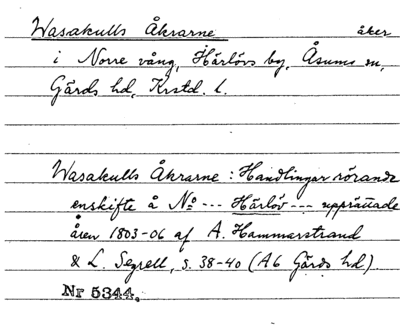 Wasakulls Åkrarne åker
i Norre vång, Härlövs by, Åsums sn,
Gärds hd, Krstd. l.
Wasakulls Åkrarne : Handlingar rörande
enskifte å No --- Härlöv --- upprättade
åren 1803-06 af A. Hammarstrand
& L. Segrell, s. 38-40 (A6 Gärds hd)
Nr 5344.